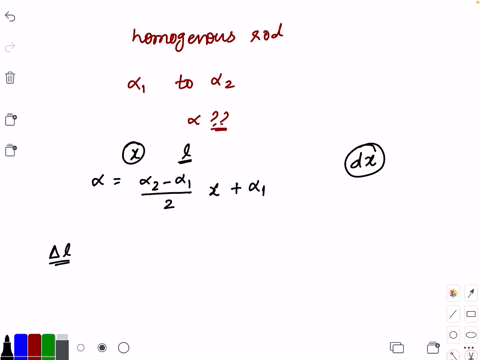 homogenous rod
α₁ to α₂
α ??
x l
dx
α = (α₂ - α₁)/2 x + α₁
Δl